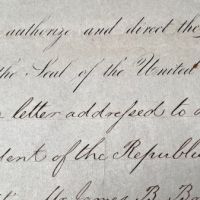 authorize and direct the
the Seal of the United
letter addressed to
dent of the Republic
James B. B